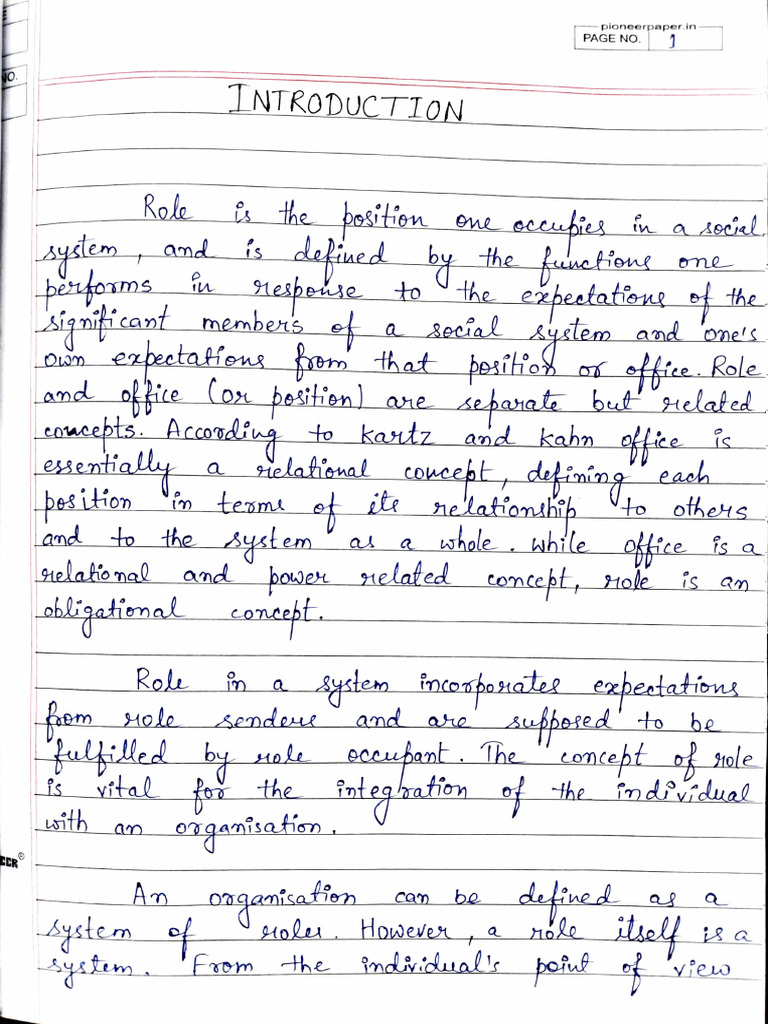 pioneerpaper.in
PAGE NO. 1
NO.
INTRODUCTION
Role is the position one occupies in a social
system, and is defined by the functions one
performs in response to the expectations of the
significant members of a social system and one's
own expectations from that position or office. Role
and office (or position) are separate but related
concepts. According to Kartz and Kahn office is
essentially a relational concept, defining each
position in terms of its relationship to others
and to the system as a whole. While office is a
relational and power related concept, role is an
obligational concept.
Role in a system incorporates expectations
from role senders and are supposed to be
fulfilled by role occupant. The concept of role
is vital for the integration of the individual
with an organisation.
EER®
An organisation can be defined as a
system of roles. However, a role itself is a
system. From the individual's point of view